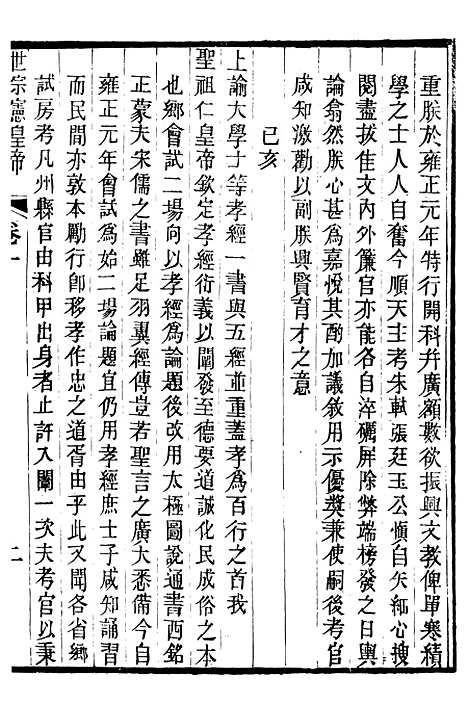 重朕於雍正元年特行開科并廣額數欲振興文教俾單寒積
學之士人人自奮今順天主考朱軾張廷玉公愼自矢細心搜
閱盡拔佳文內外簾官亦能各自淬礪屏除弊端榜發之日輿
論翕然朕心甚爲嘉悅其酌加議敘用示優獎兼使嗣後考官
咸知激勸以副朕興賢育才之意
己亥
上諭大學士等孝經一書與五經並重蓋孝爲百行之首我
聖祖仁皇帝欽定孝經衍義以闡發至德要道誠化民成俗之本
也鄉會試二場向以孝經爲論題後改用太極圖說通書西銘
正蒙夫宋儒之書雖足羽翼經傳豈若聖言之廣大悉備今自
雍正元年會試爲始二場論題宜仍用孝經庶士子咸知誦習
而民間亦敦本勵行卽移孝作忠之道胥由乎此又聞各省鄉
試房考凡州縣官由科甲出身者止許入闈一次夫考官以秉
世宗憲皇帝 卷一 二